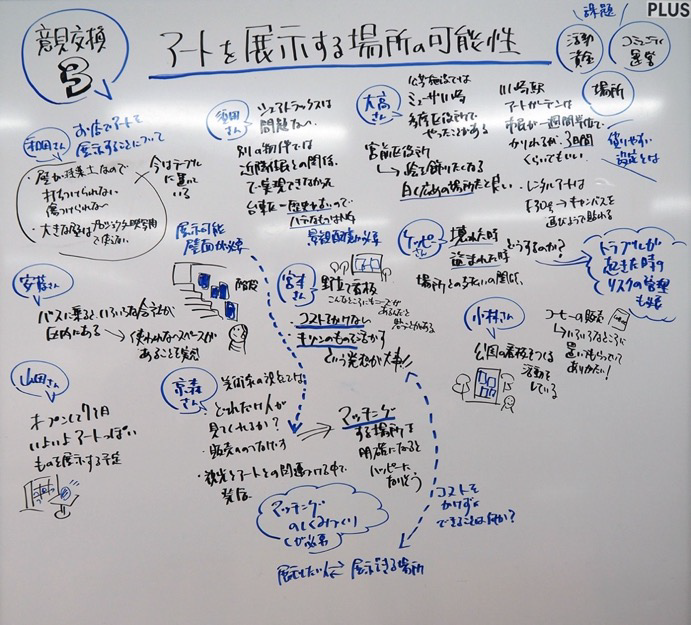 PLUS
意見交換
3
アートを展示する場所の可能性
課題
活動
資産
コミュニティ
運営
場所
借りやすい
設定とは
和田さん
お店でアートを
展示することについて
・壁が珪藻土なので
打ちつけられない
傷つけられない
・大きな壁はプロジェクター映写用
で使えない
今はテーブル
に置いて
いる
展示可能
壁面が必要
階段
須田
さん
シェアトラックスは
問題ない
別の物件では
近隣住民との関係
で実現できなかった
台東区=歴史ある街なので
ハデなものはNG
景観配慮が必要
大高
さん
公共施設では
ミューザ川崎
多摩区役所で
やったことがある
宮前区役所
→絵を飾りたくなる
白くて広めの場所だと良い
川崎駅
アートガーデンは
市民が一週間単位で
かりれるが、3日間
くらいでもいい
・レンタルアートは
ケッピー
さん
壊れた時
盗まれた時
どうするか?
場所とのお互いの関係
トラブルが
起きた時の
リスクの管理
も必要
安藤
さん
バスに乗ると、いろいろな会社が
区内にある
→使われないスペースが
あることを発見
宮本
さん
野立て看板
・コストをかけない
・キリンのものを活かす
という発想が大事!!
小村さん
コーヒーの販売
→いろいろなところに
置いてもらっていて
ありがたい!
公園の看板をつくる
活動を
している
山田
さん
オープンして7ヶ月
いよいよアートっぽい
ものを展示する予定
京森
さん
美術家の視点では
どれだけ人が
見てくれるか?
・販売のつなげ方
・観光とアートとの関連づける中で
発信
マッチング
する場所を
明確になると
ハッピーに
なりそう
マッチング
のしくみづくり
が必要
コストを
かけずに
できることは何か?
展示したい人⇄展示できる場所